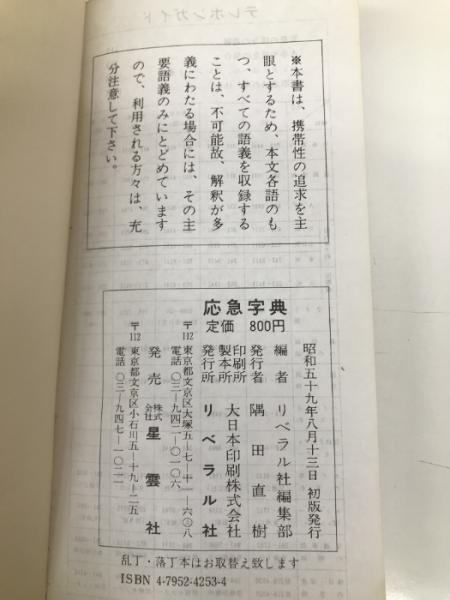 ※本書は、携帯性の追求を主
眼とするため、本文各語のも
つ、すべての語義を収録する
ことは、不可能故、解釈が多
義にわたる場合には、その主
要語義のみにとどめています
ので、利用される方々は、充
分注意して下さい。
応急字典
定価 800円
昭和五十九年八月十三日 初版発行
編者 リベラル社編集部
発行者 隅田直樹
印刷所
製本所 大日本印刷株式会社
発行所 リベラル社
〒112 東京都文京区大塚五-七-十一-六〇八
電話 〇三-九四二-〇一〇六
発売 株式会社 星雲社
〒112 東京都文京区小石川五-十九-二五
電話 〇三-九四七-一〇二一
乱丁・落丁本はお取替え致します
ISBN 4-7952-4253-4